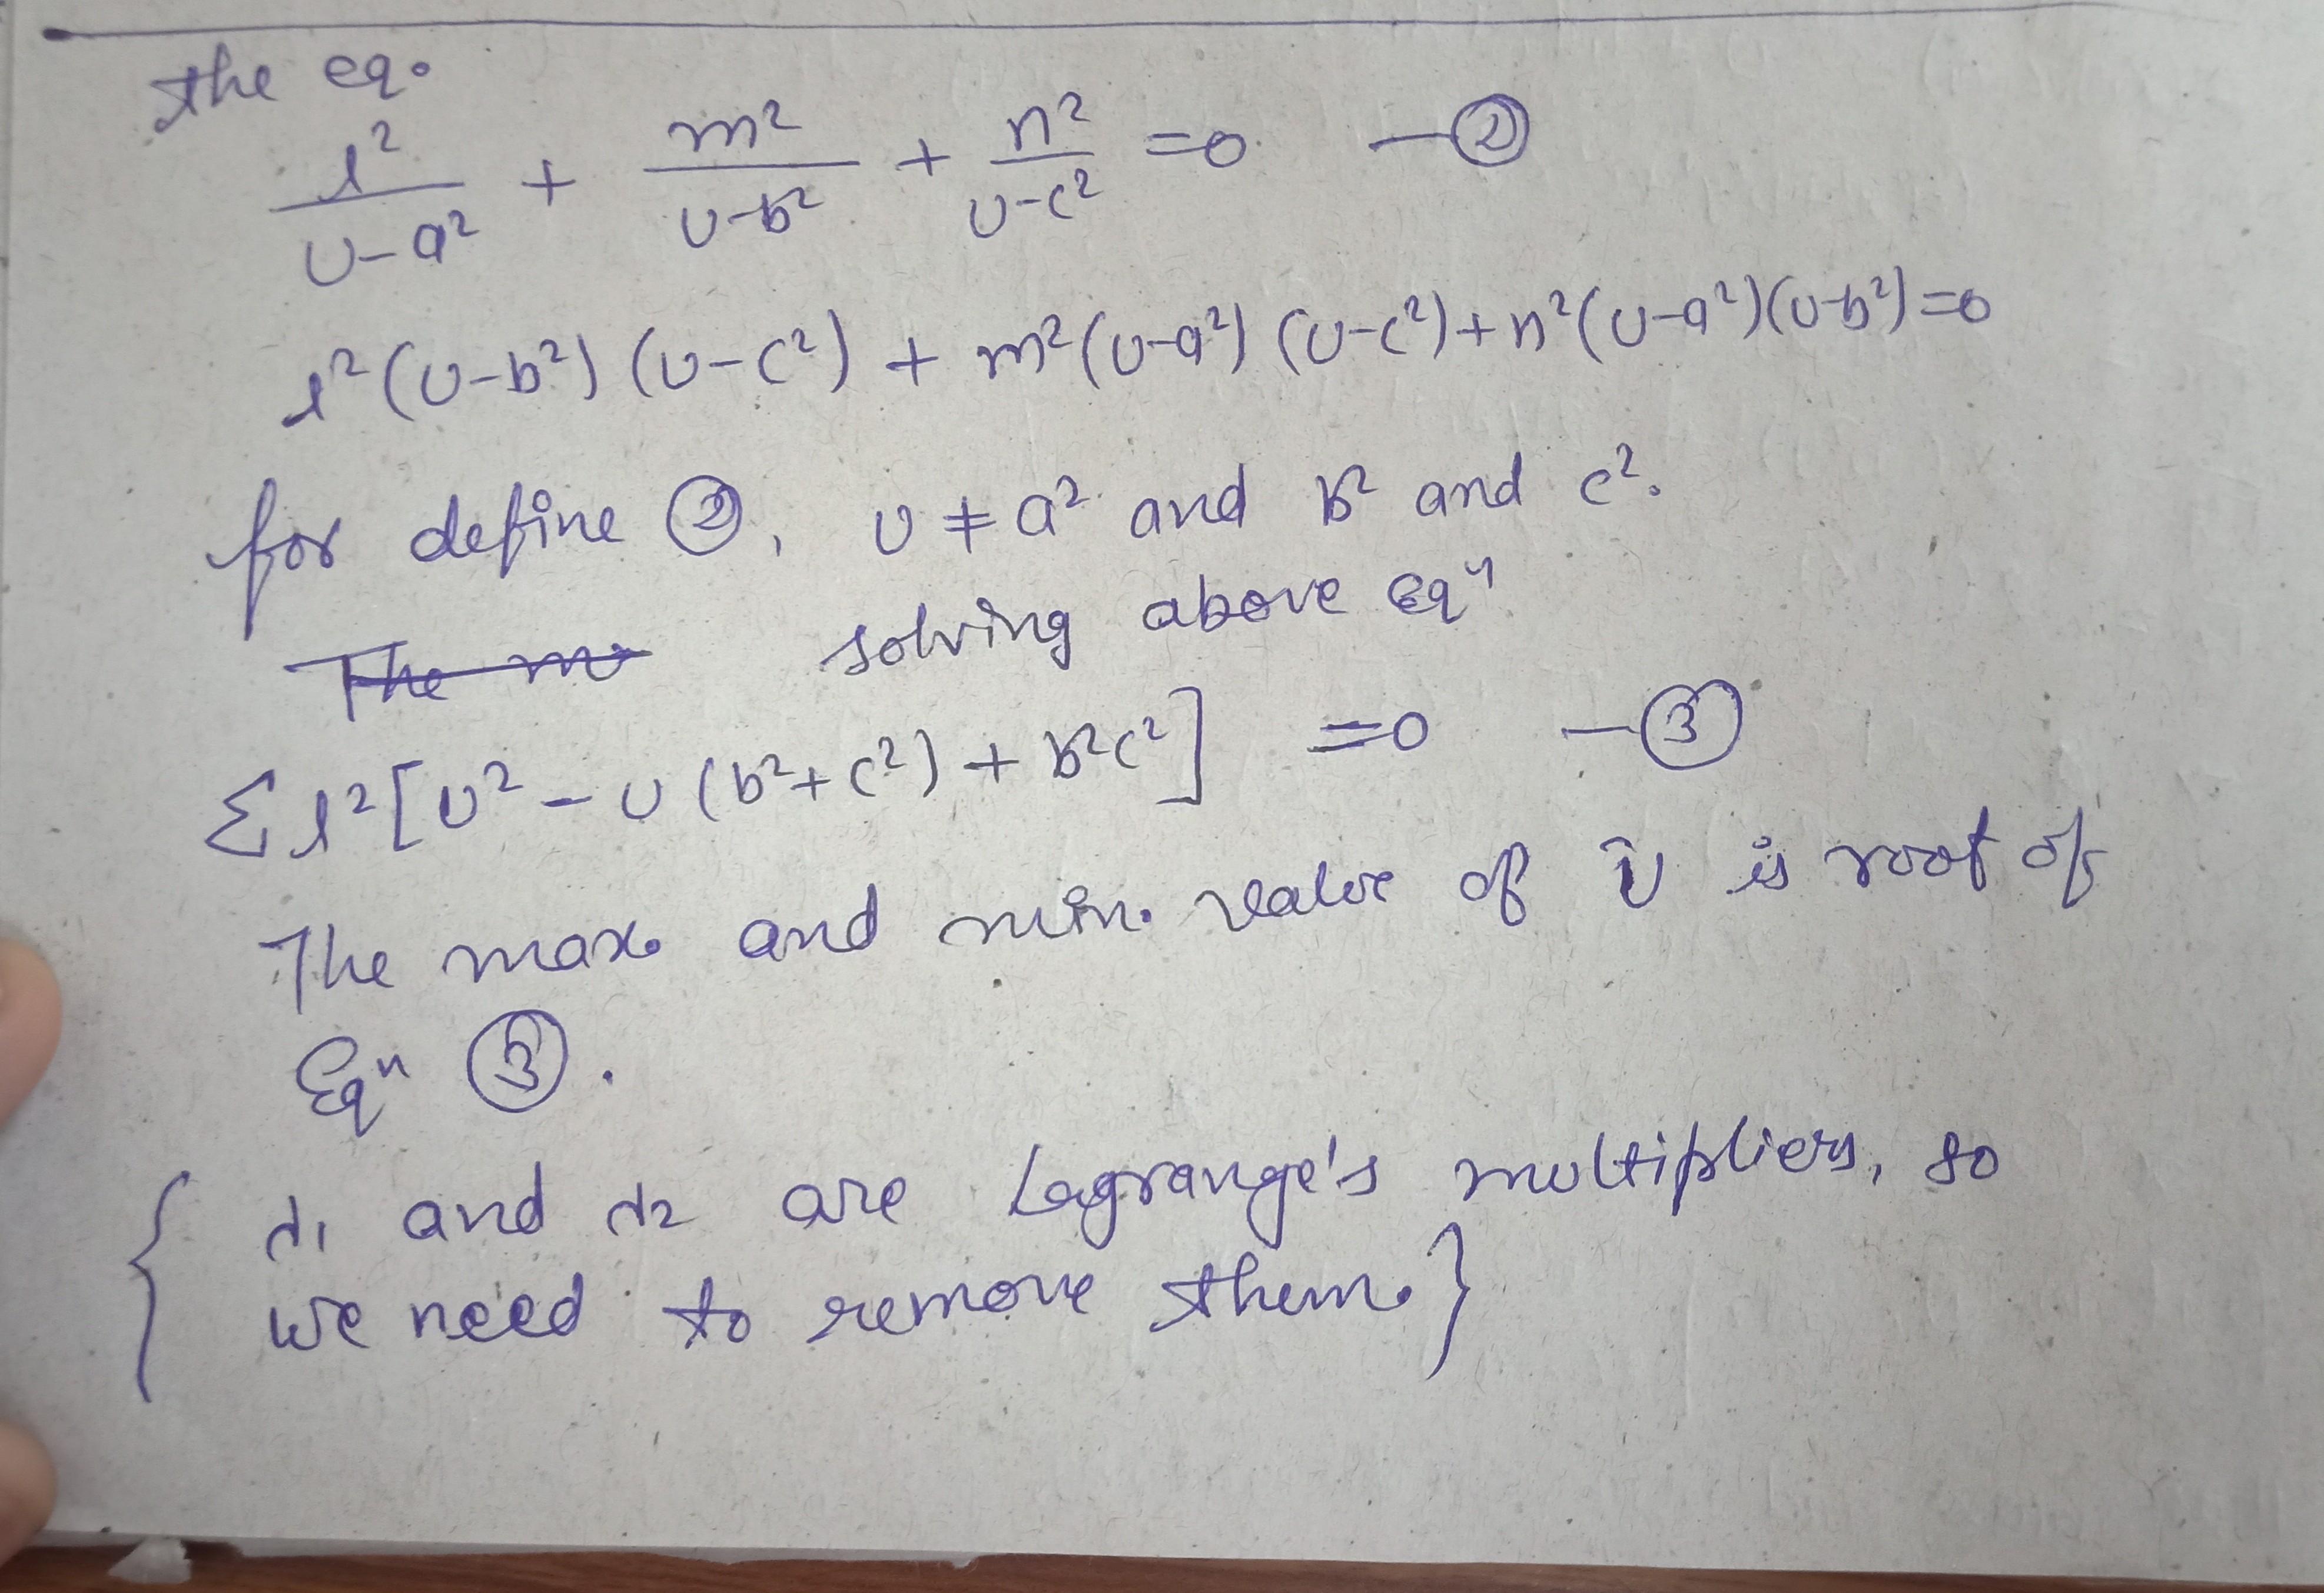 the eq.
l²/(U-a²) + m²/(U-b²) + n²/(U-c²) =0 —②
l²(U-b²) (U-c²) + m²(U-a²) (U-c²)+n²(U-a²)(U-b²)=0
for define ②, U ≠ a² and b² and c².
The m solving above Eqⁿ
Σ l²[U² - U (b²+c²) + b²c²] =0 —③
The max. and min. value of U is root of
Eqⁿ ③.
{ λ₁ and λ₂ are Lagrange's multipliers, so
we need to remove them. }